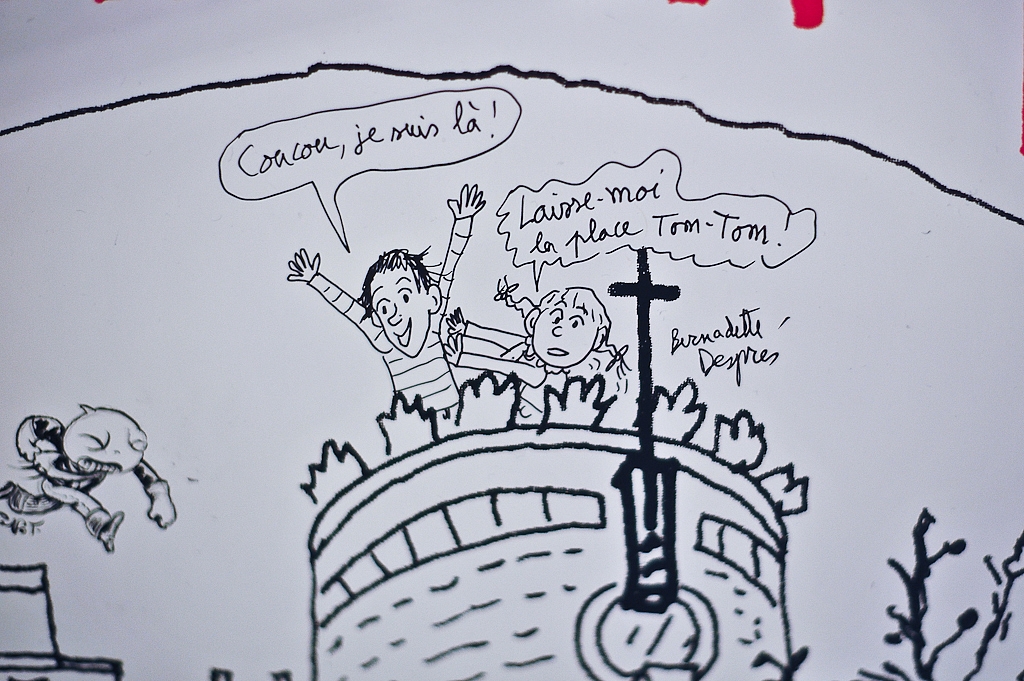 Coucou, je suis là !
Laisse-moi
la place Tom-Tom !
Bernadette
Després